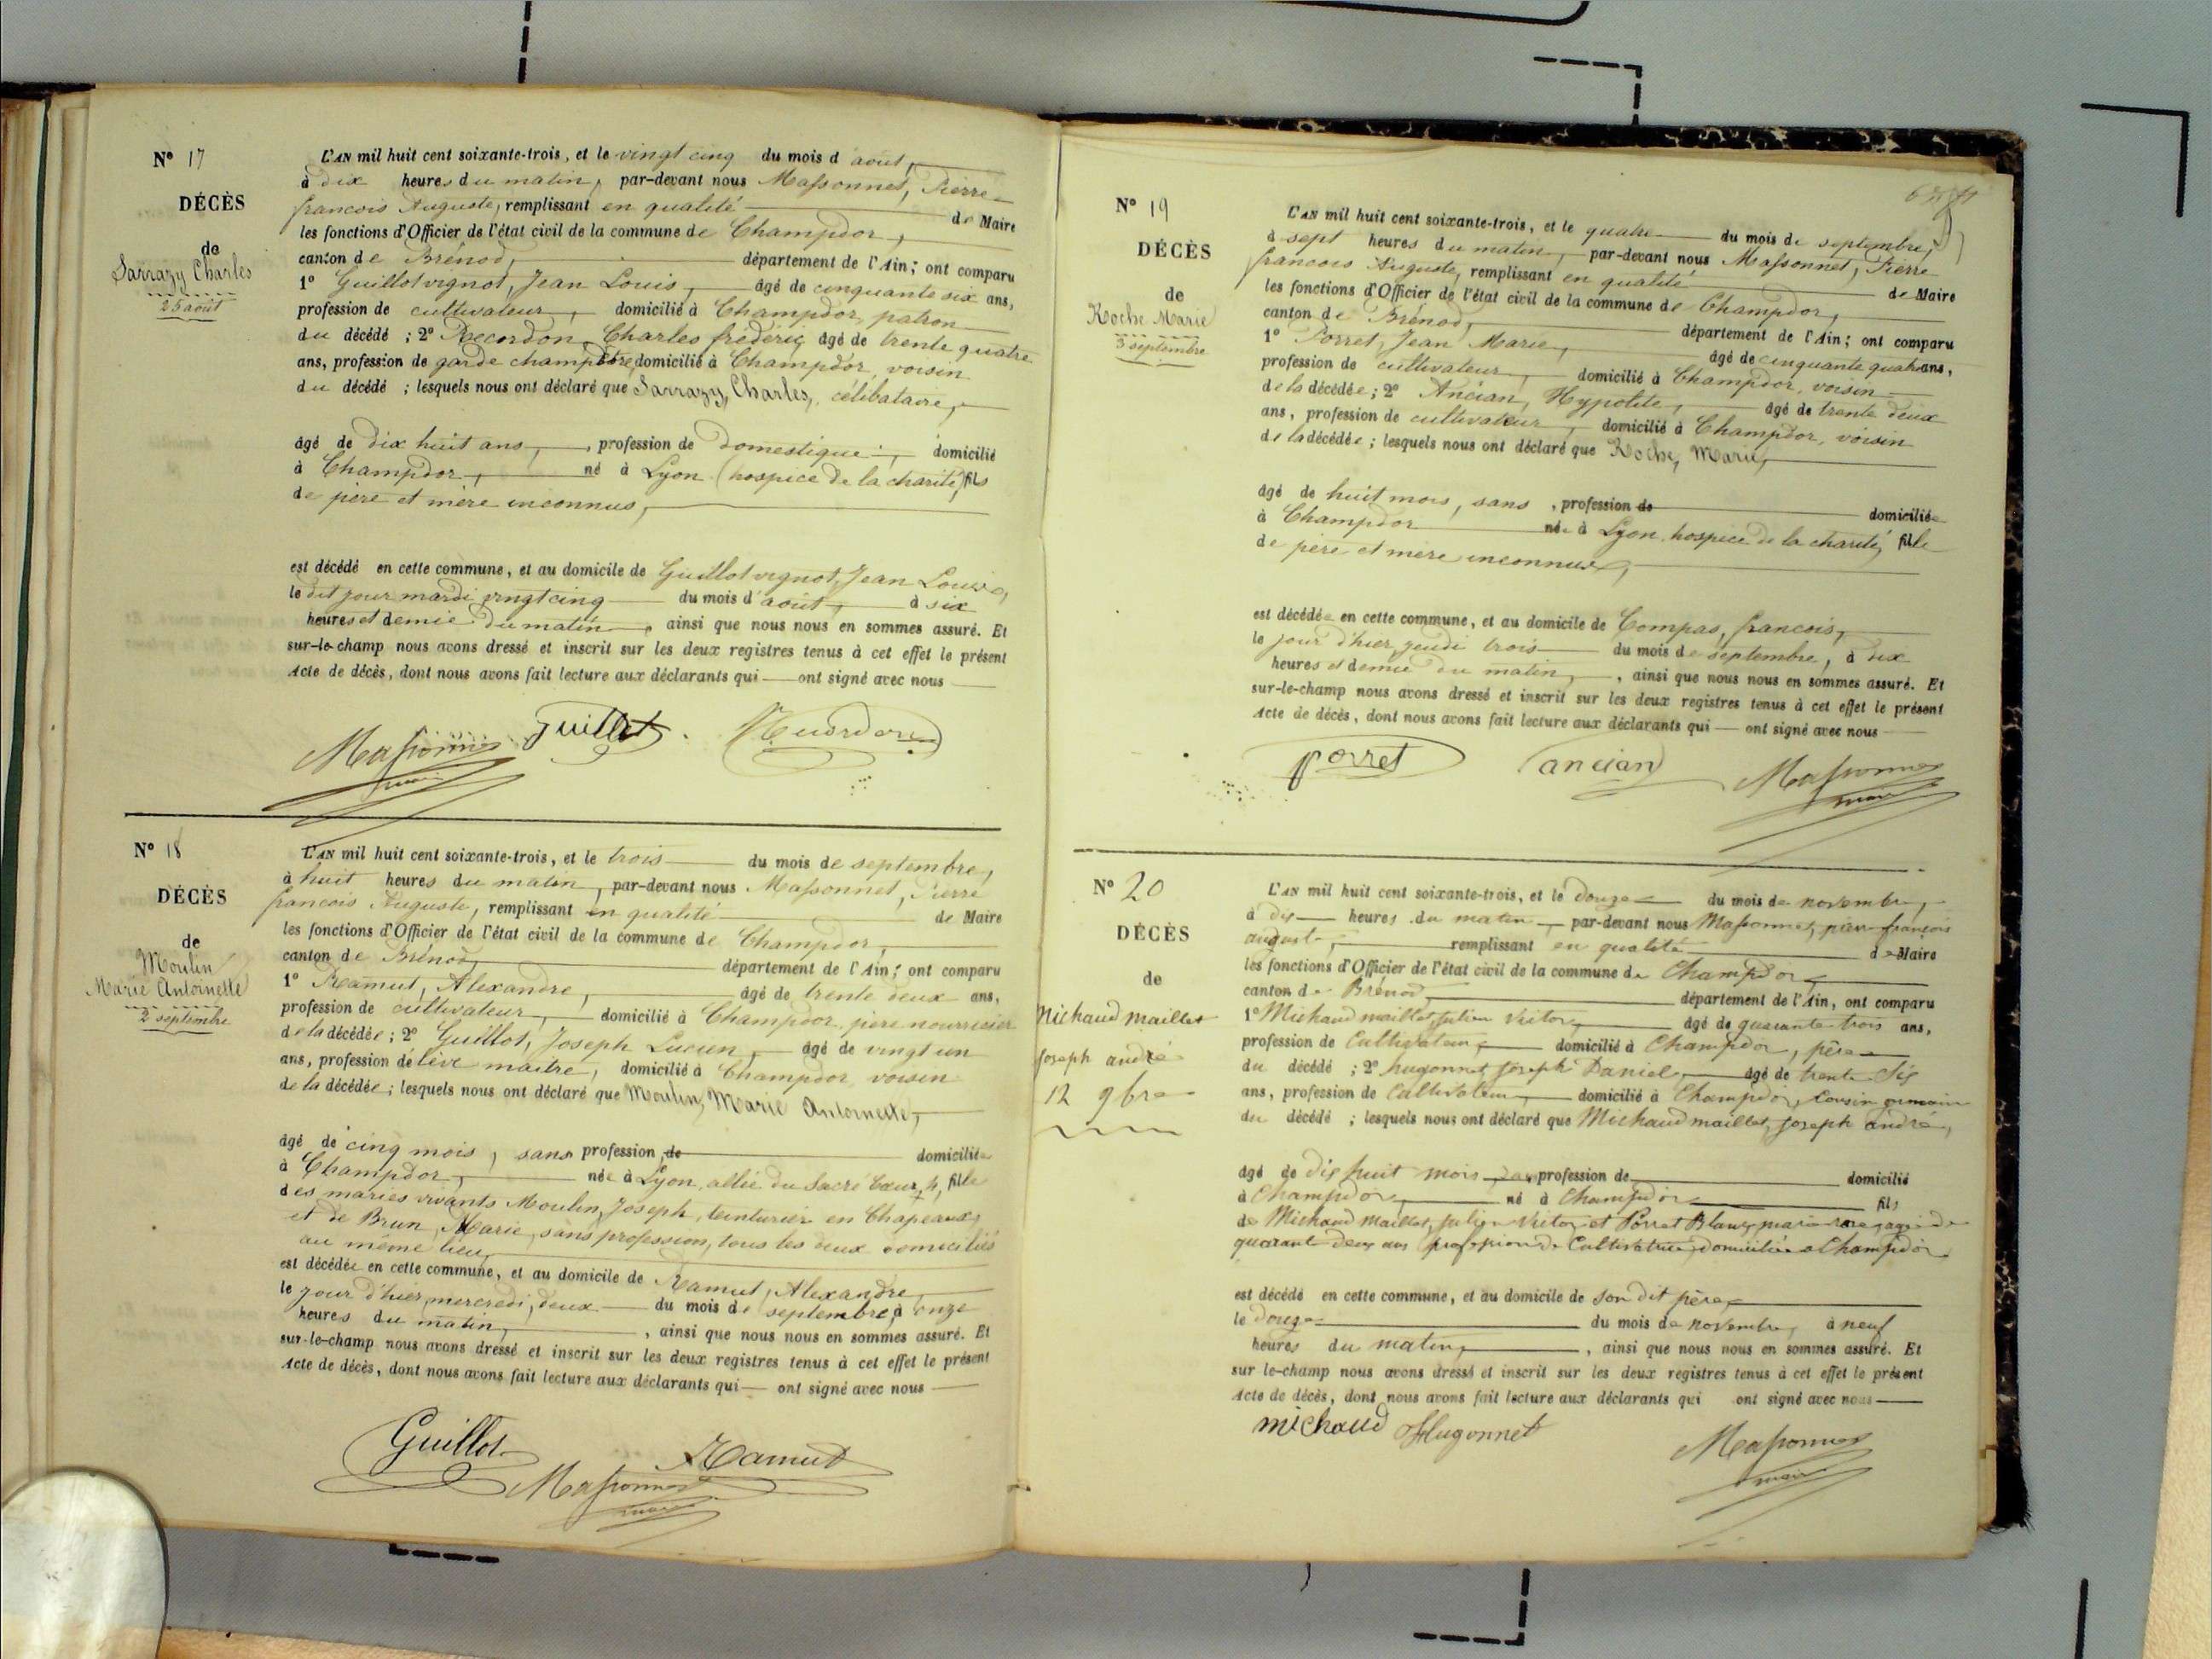 N° 17
DÉCÈS
de
Sarrazy Charles
25 août
L'AN mil huit cent soixante-trois, et le vingt cinq du mois d'août,
à dix heures du matin, par-devant nous Massonnet, Pierre
francois Auguste, remplissant en qualité de Maire
les fonctions d'Officier de l'état civil de la commune de Champdor,
canton de Brénod, département de l'Ain; ont comparu
1° Guillot vignot, Jean Louis, âgé de cinquante six ans,
profession de cultivateur, domicilié à Champdor, patron
du décédé ; 2° Recordon, Charles frédéric, âgé de trente quatre
ans, profession de garde champêtre, domicilié à Champdor, voisin
du décédé ; lesquels nous ont déclaré que Sarrazy, Charles, célibataire,
âgé de dix huit ans, profession de domestique, domicilié
à Champdor, né à Lyon (hospice de la charité) fils
de père et mère inconnus,
est décédé en cette commune, et au domicile de Guillot vignot, Jean Louis,
le dit jour mardi vingt cinq du mois d'août, à six
heures et demie du matin, ainsi que nous nous en sommes assuré. Et
sur-le-champ nous avons dressé et inscrit sur les deux registres tenus à cet effet le présent
Acte de décès, dont nous avons fait lecture aux déclarants qui ont signé avec nous
Massonnet guillot Recordon
maire
N° 18
DÉCÈS
de
Moulin
Marie Antoinette
2 septembre
L'AN mil huit cent soixante-trois, et le trois du mois de septembre,
à huit heures du matin, par-devant nous Massonnet, Pierre
francois Auguste, remplissant en qualité de Maire
les fonctions d'Officier de l'état civil de la commune de Champdor,
canton de Brénod, département de l'Ain; ont comparu
1° Ramut, Alexandre, âgé de trente deux ans,
profession de cultivateur, domicilié à Champdor, père nourricier
de la décédée; 2° Guillot, Joseph Lucien, âgé de vingt un
ans, profession de lève maître, domicilié à Champdor, voisin
de la décédée; lesquels nous ont déclaré que Moulin, Marie Antoinette,
âgé de cinq mois, sans profession, de domiciliée
à Champdor, née à Lyon, allée du Sacré Cœur, 4, fille
des mariés vivants Moulin, Joseph, teinturier en Chapeaux,
et de Brun, Marie, sans profession, tous les deux domiciliés
au même lieu,
est décédée en cette commune, et au domicile de Ramut, Alexandre,
le jour d'hier, mercredi, deux du mois de septembre, à onze
heures du matin, ainsi que nous nous en sommes assuré. Et
sur-le-champ nous avons dressé et inscrit sur les deux registres tenus à cet effet le présent
Acte de décès, dont nous avons fait lecture aux déclarants qui ont signé avec nous
Guillot Ramut
Massonnet
maire
N° 19
DÉCÈS
de
Roche Marie
3 septembre
L'AN mil huit cent soixante-trois, et le quatre du mois de septembre,
à sept heures du matin, par-devant nous Massonnet, Pierre
francois Auguste, remplissant en qualité de Maire
les fonctions d'Officier de l'état civil de la commune de Champdor,
canton de Brénod, département de l'Ain; ont comparu
1° Porret, Jean Marie, âgé de cinquante quatre ans,
profession de cultivateur, domicilié à Champdor, voisin
de la décédée; 2° Ancian, Hypolite, âgé de trente deux
ans, profession de cultivateur, domicilié à Champdor, voisin
de la décédée ; lesquels nous ont déclaré que Roche, Marie,
âgé de huit mois, sans, profession de domiciliée
à Champdor née à Lyon, hospice de la charité, fille
de père et mère inconnus,
est décédée en cette commune, et au domicile de Compas, francois,
le jour d'hier, jeudi trois du mois de septembre, à dix
heures et demie du matin, ainsi que nous nous en sommes assuré. Et
sur-le-champ nous avons dressé et inscrit sur les deux registres tenus à cet effet le présent
Acte de décès, dont nous avons fait lecture aux déclarants qui ont signé avec nous
porret ancian Massonnet
maire
N° 20
DÉCÈS
de
Michaud maillet
joseph andré
12 9bre
L'AN mil huit cent soixante-trois, et le douze du mois de novembre,
à dix heures du matin, par-devant nous Massonnet, pierre françois
auguste, remplissant en qualité de Maire
les fonctions d'Officier de l'état civil de la commune de Champdor,
canton de Brénod, département de l'Ain, ont comparu
1° Michaud maillet, julien Victor, âgé de quarante trois ans,
profession de Cultivateur, domicilié à Champdor, père
du décédé ; 2° hugonnet, joseph Daniel, âgé de trente Six
ans, profession de Cultivateur, domicilié à Champdor, Cousin germain
du décédé ; lesquels nous ont déclaré que Michaud maillet, joseph andré,
âgé de dix huit mois sans profession de domicilié
à Champdor, né à Champdor fils
de Michaud maillet, julien Victor et Porret Blanc, marie rose, agée de
quarante deux ans profession de Cultivatrice, domiciliée à Champdor
est décédé en cette commune, et au domicile de son dit père,
le douze du mois de novembre, à neuf
heures du matin, ainsi que nous nous en sommes assuré. Et
sur le-champ nous avons dressé et inscrit sur les deux registres tenus à cet effet le présent
Acte de décès, dont nous avons fait lecture aux déclarants qui ont signé avec nous
michaud Hugonnet Massonnet
maire